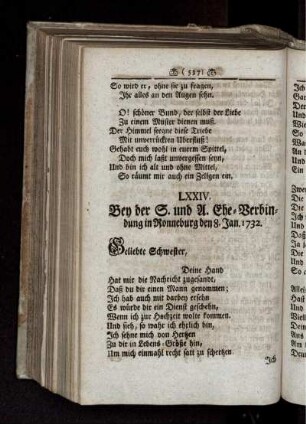 ( 557 )
So wird er, ohne sie zu fragen,
Ihr alles an den Augen sehn.
O! schöner Bund, der selbst der Liebe
Zu einem Muster dienen muß.
Der Himmel seegne diese Triebe
Mit unverrückten Uberfluß!
Gehabt euch wohl in eurem Spittel,
Doch mich laßt unvergessen seyn,
Und bin ich alt und ohne Mittel,
So räumt mir auch ein Zellgen ein.
LXXIV.
Bey der S. und A. Ehe-Verbin-
dung in Ronneburg den 8. Jan. 1732.
Geliebte Schwester,
Deine Hand
Hat mir die Nachricht zugesandt,
Daß du dir einen Mann genommen;
Ich hab auch mit darbey ersehn
Es würde dir ein Dienst geschehn,
Wenn ich zur Hochzeit wolte kommen.
Und sieh, so wahr ich ehrlich bin,
Ich sehne mich von Hertzen
Zu dir in Lebens-Größe hin,
Um mich einmahl recht satt zu schertzen
Ich